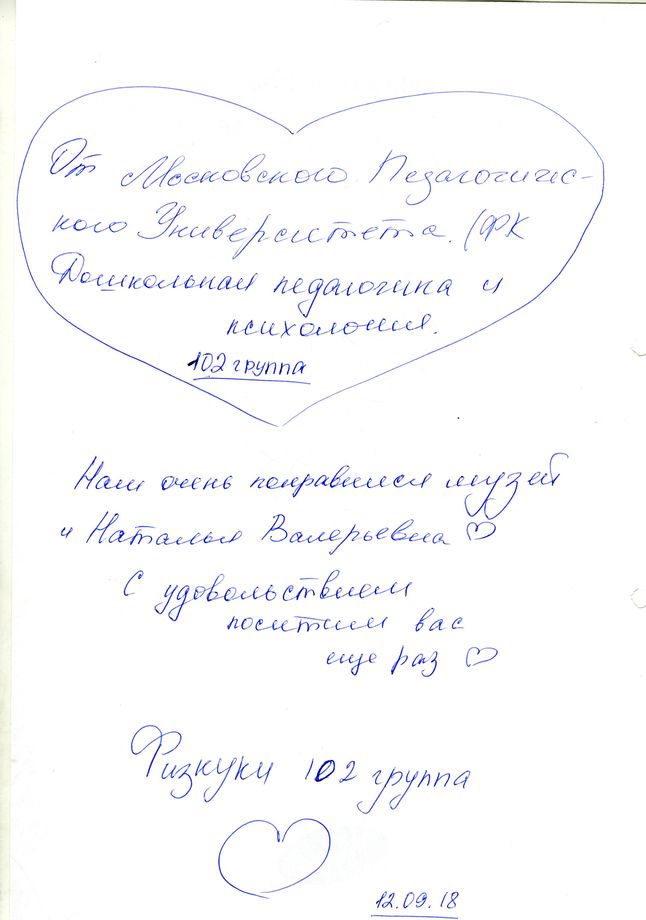 От Московского Педагогичес-
кого Университета. (ФК
Дошкольная педагогика и
психология.
102 группа
Нам очень понравился музей
и Наталья Валерьевна
С удовольствием
посетим вас
еще раз
Физкуки 102 группа
12.09.18